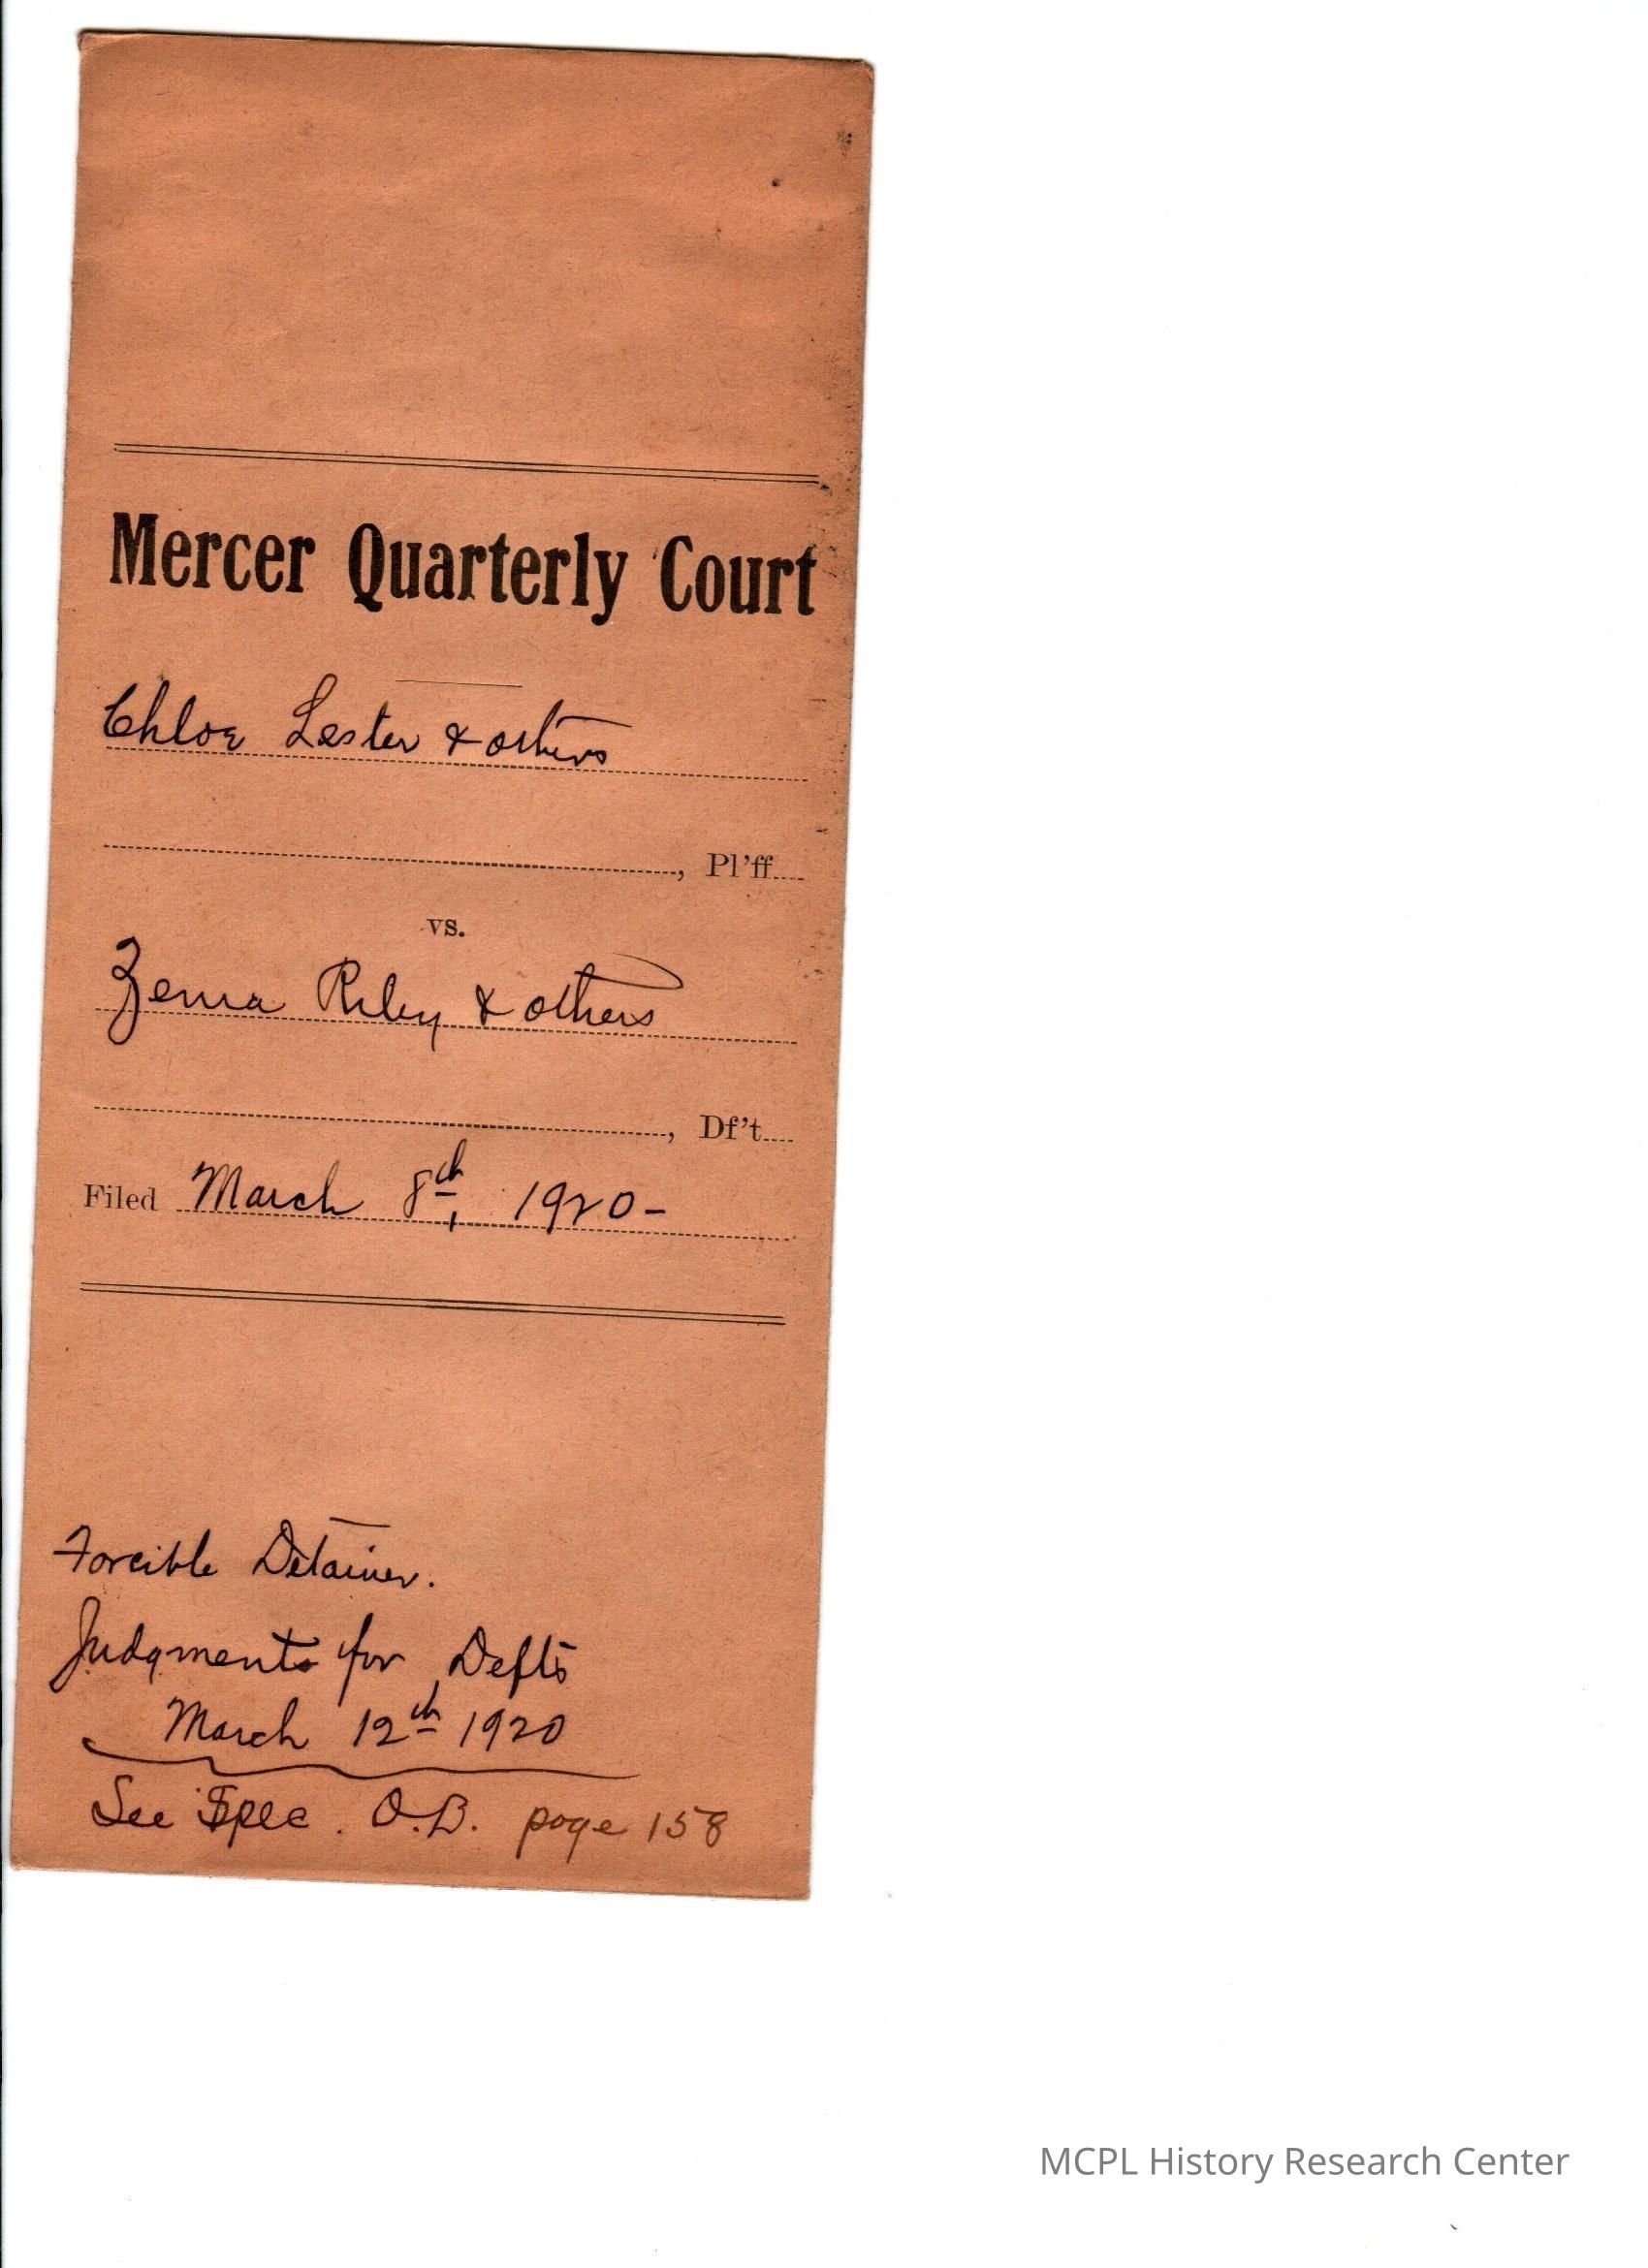 Mercer Quarterly Court
Chloe Lester & others
, Pl'ff
vs.
Riley & others
, Df't
Filed March 8th, 1920-
Forcible Detainer.
Judgments for Defts
March 12th 1920
See Spec. O.B. page 158
MCPL History Research Center